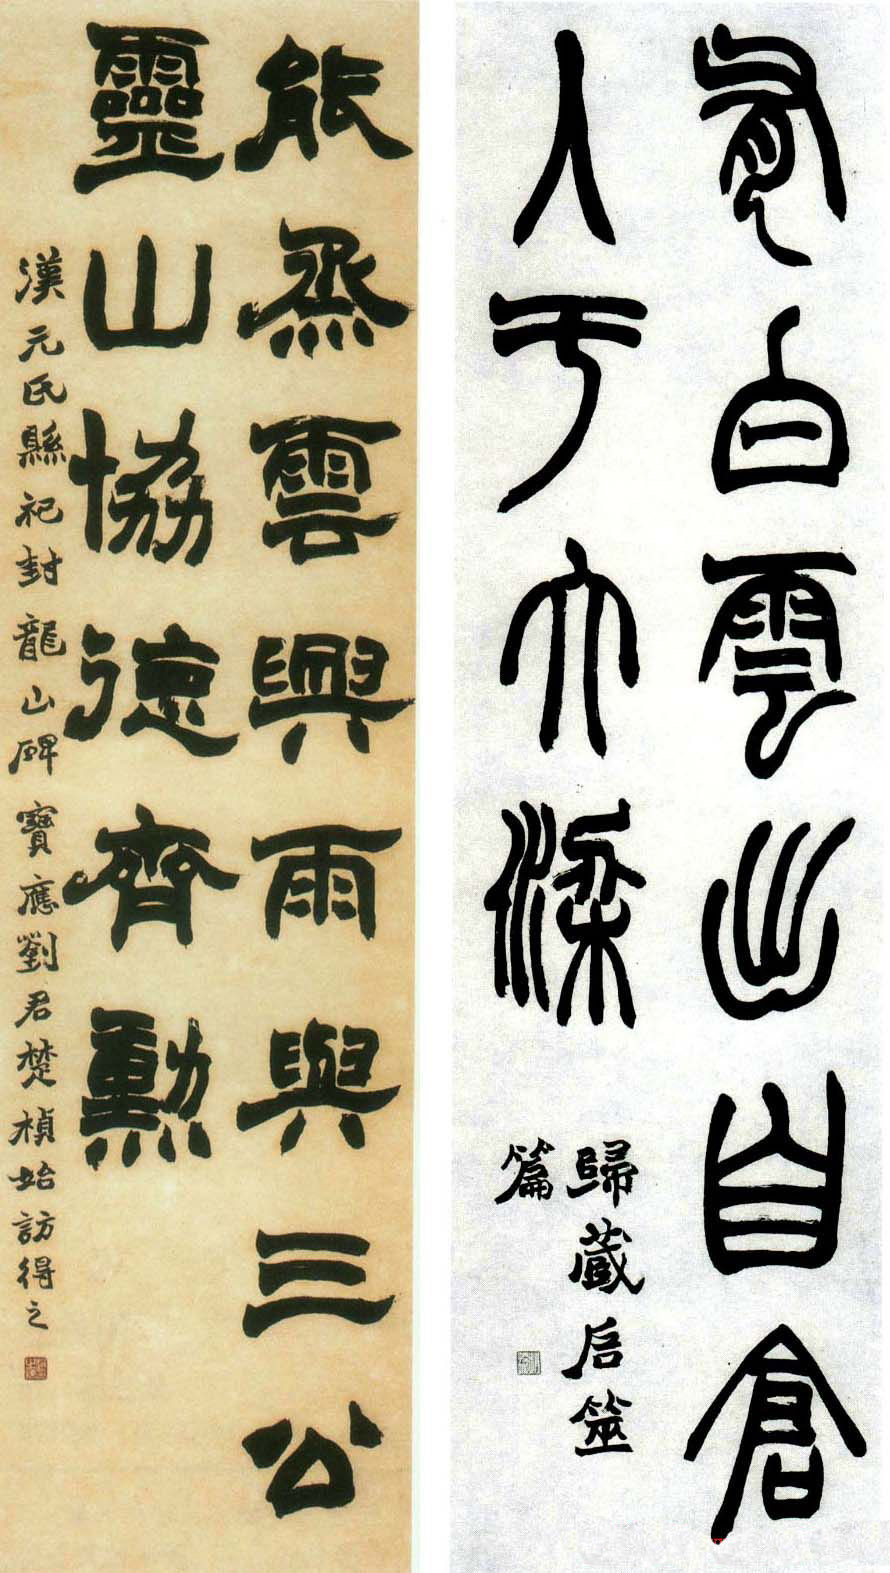 有白雲出自倉
入于大梁
歸藏启筮
篇
能烝雲興雨與三公
靈山協德齊勳
漢元氏縣祀封龍山碑寶應劉君楚楨始訪得之